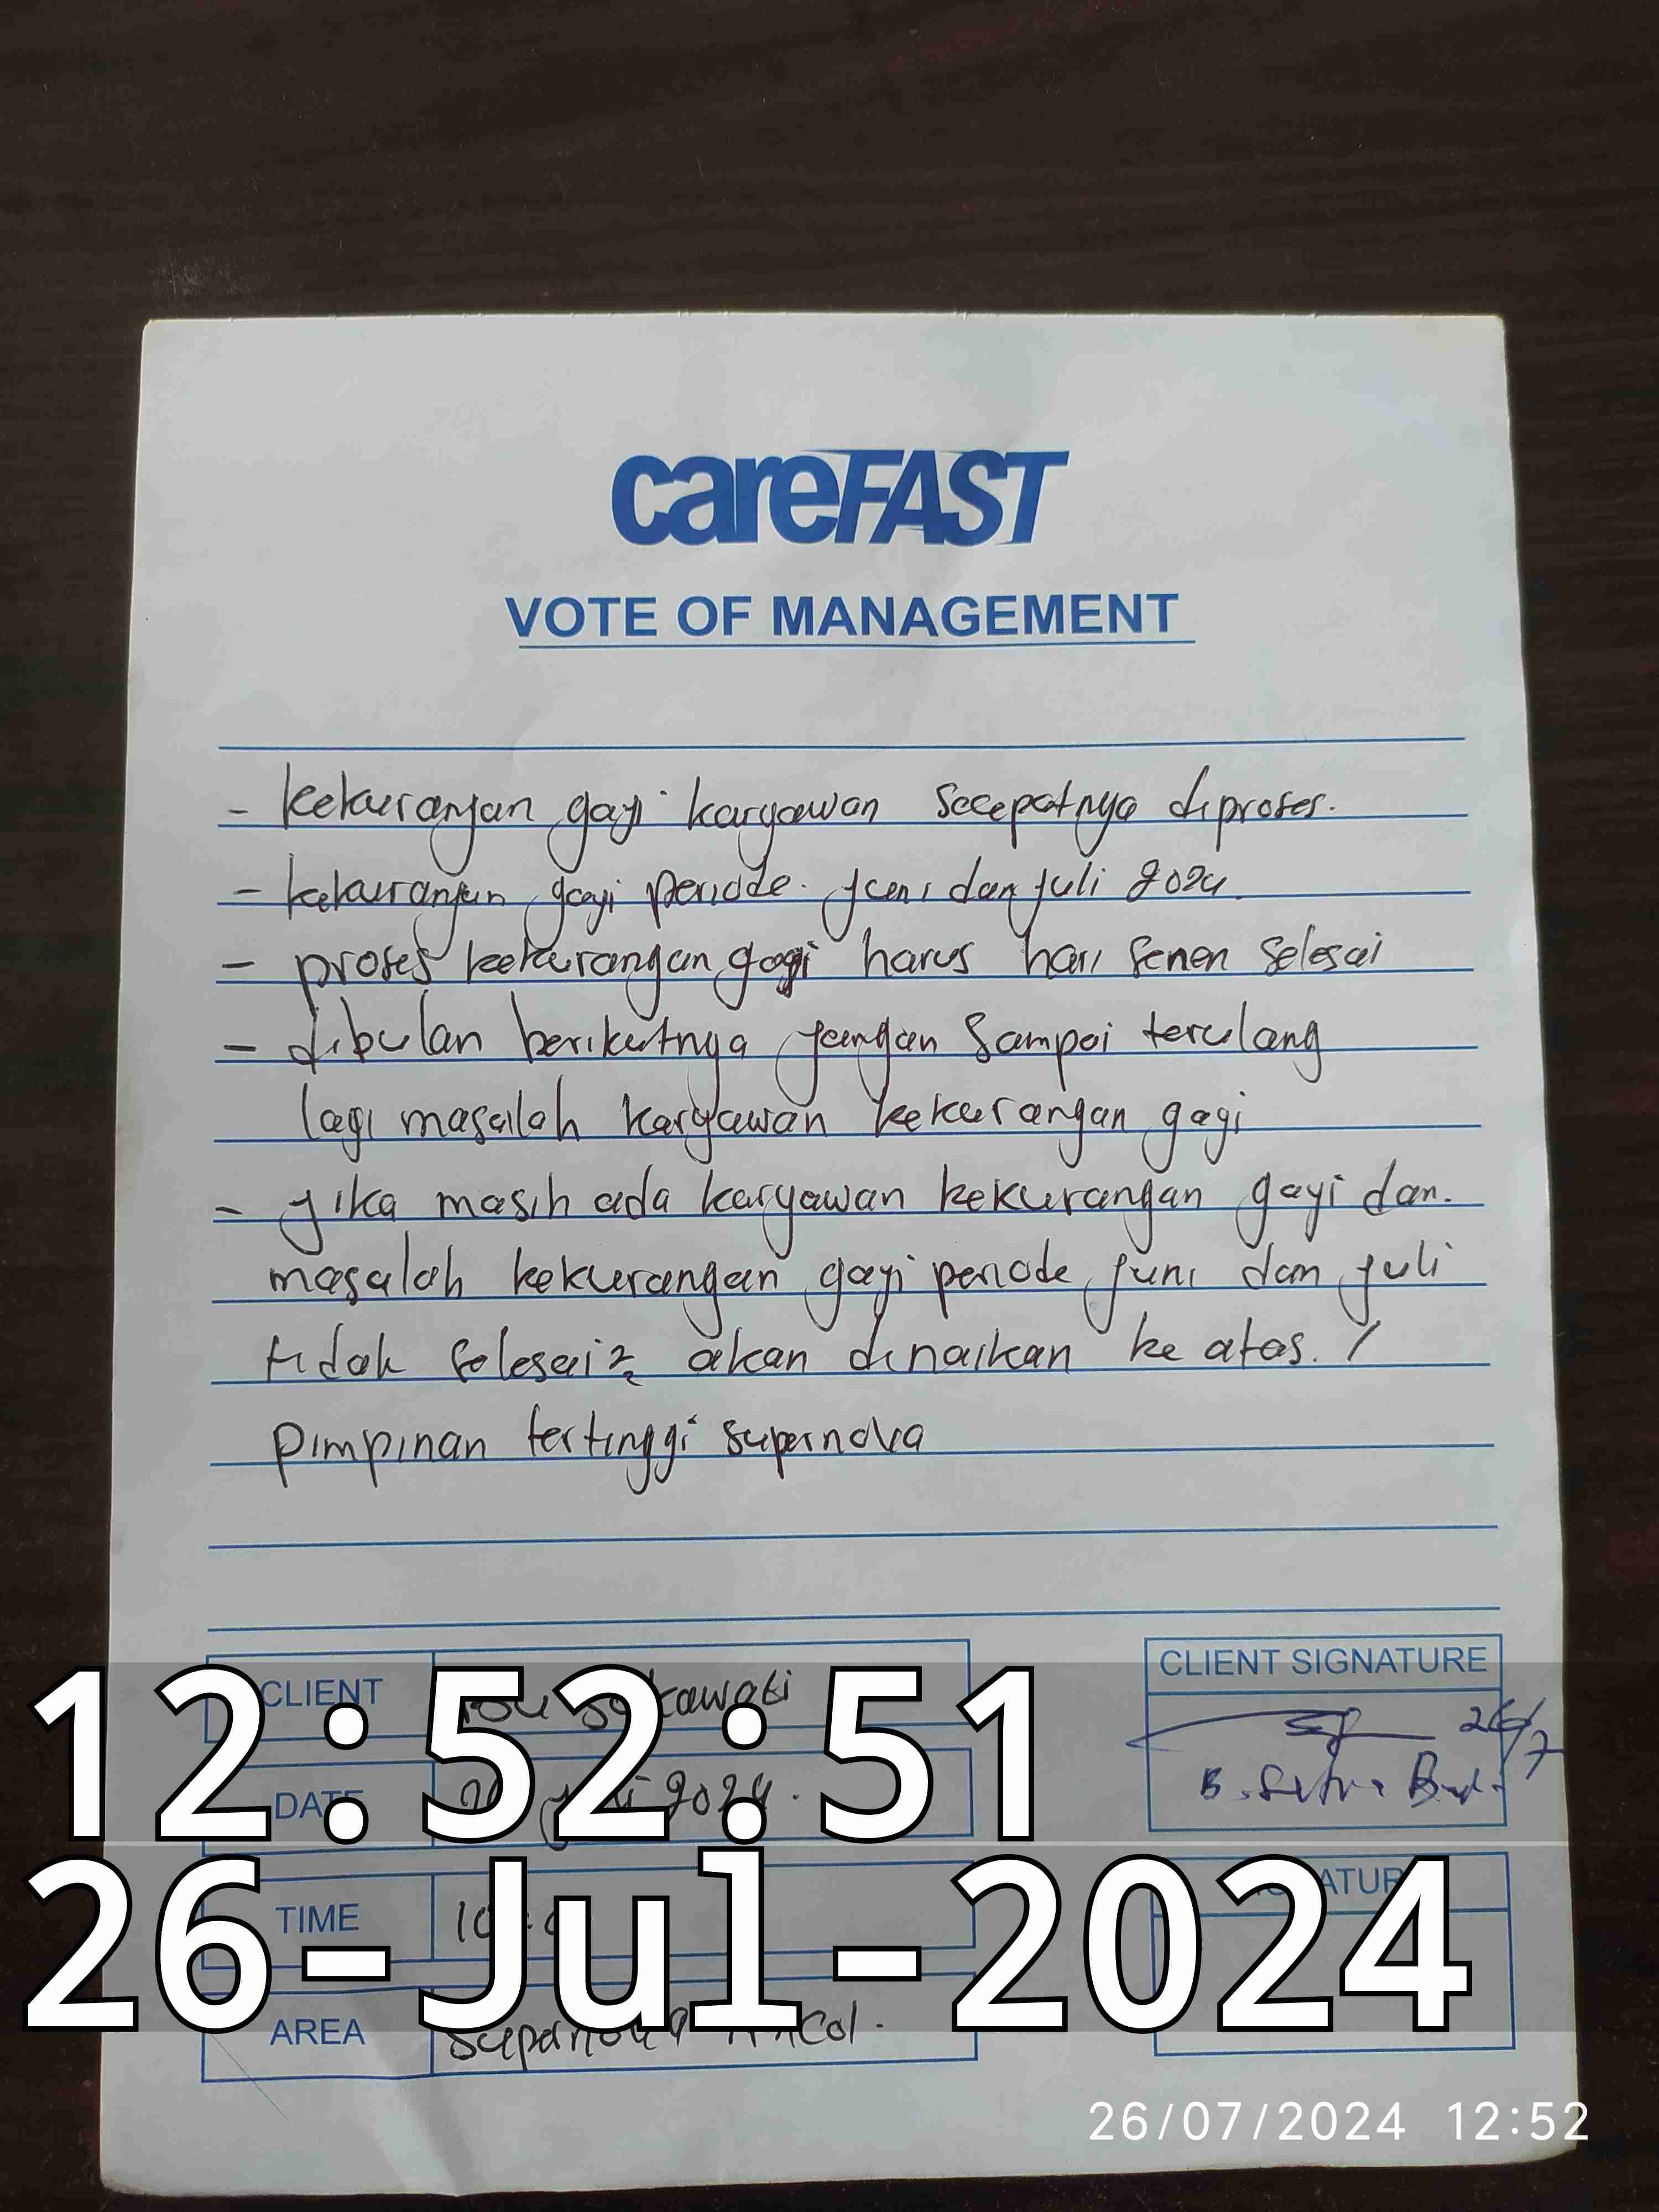 careFAST
VOTE OF MANAGEMENT
- kekurangan gaji karyawan secepatnya diproses.
- kekurangan gaji periode. Juni dan Juli 2024.
- proses kekurangan gaji harus hari senen selesai
- dibulan berikutnya jangan sampai terulang
lagi masalah karyawan kekurangan gaji
- jika masih ada karyawan kekurangan gaji dan.
masalah kekurangan gaji periode juni dan juli
tidak selesai2 akan dinaikan ke atas. /
pimpinan tertinggi supernova
CLIENT
DATE 2024.
TIME
AREA Supernova Ancol.
CLIENT SIGNATURE
26/7
12:52:51
26-Jul-2024
26/07/2024 12:52